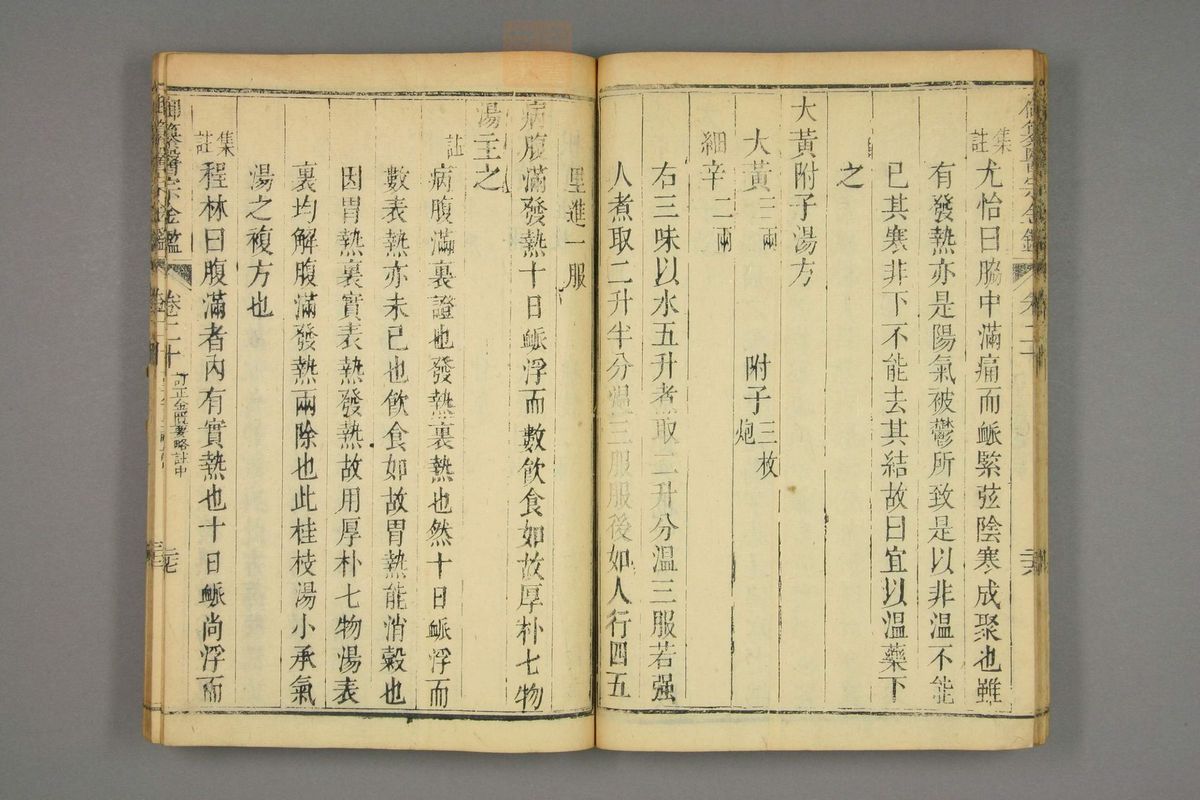 集註
尤怡曰脇中滿痛而脈緊弦陰寒成聚也雖
有發熱亦是陽氣被鬱所致是以非溫不能
已其寒非下不能去其結故曰宜以溫藥下
之
大黃附子湯方
大黃三兩 附子三枚炮
細辛二兩
右三味以水五升煮取二升分溫三服若强
人煮取二升半分溫三服服後如人行四五
里進一服
病腹滿發熱十日脈浮而數飲食如故厚朴七物
湯主之
註
病腹滿裏證也發熱裏熱也然十日脈浮而
數表熱亦未已也飲食如故胃熱能消穀也
因胃熱裏實表熱發熱故用厚朴七物湯表
裏均解腹滿發熱兩除也此桂枝湯小承氣
湯之複方也
集註
程林曰腹滿者內有實熱也十日脈尚浮而
御纂醫宗金鑑 卷二十 訂正金匱要略註中 三七